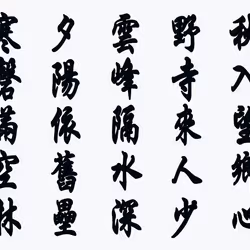 秋入望鄉心
野寺來人少
雲峰隔水深
夕陽依舊壘
寒磬滿空林